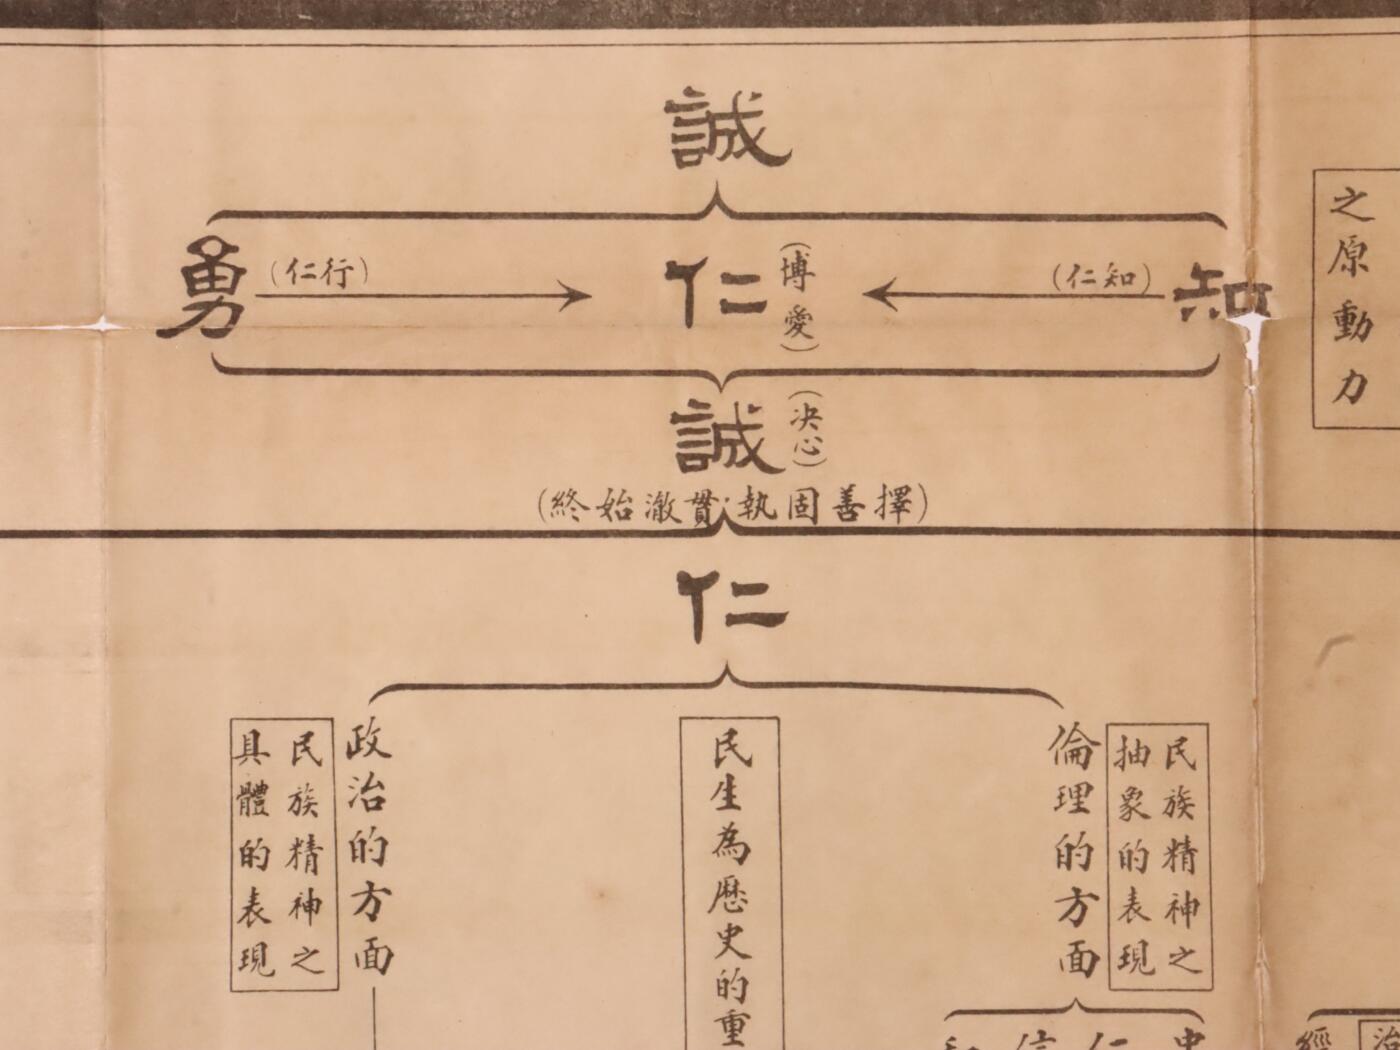 誠
知
(仁知)
仁
(博愛)
(仁行)
勇
之原動力
誠
(决心)
(擇善固執·貫澈始終)
仁
民族精神之
抽象的表現
倫理的方面
民生為歷史的重
政治的方面
民族精神之
具體的表現
忠
仁
信
和
經
治